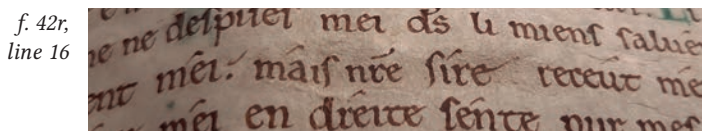 f. 42r,
line 16
ne ne despises mei ds li miens salue
ent mei. mais nre sire receut me
mei en dreite sente pur mes